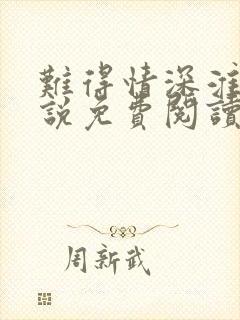 難得情深淮
說免費閱讀
周新武